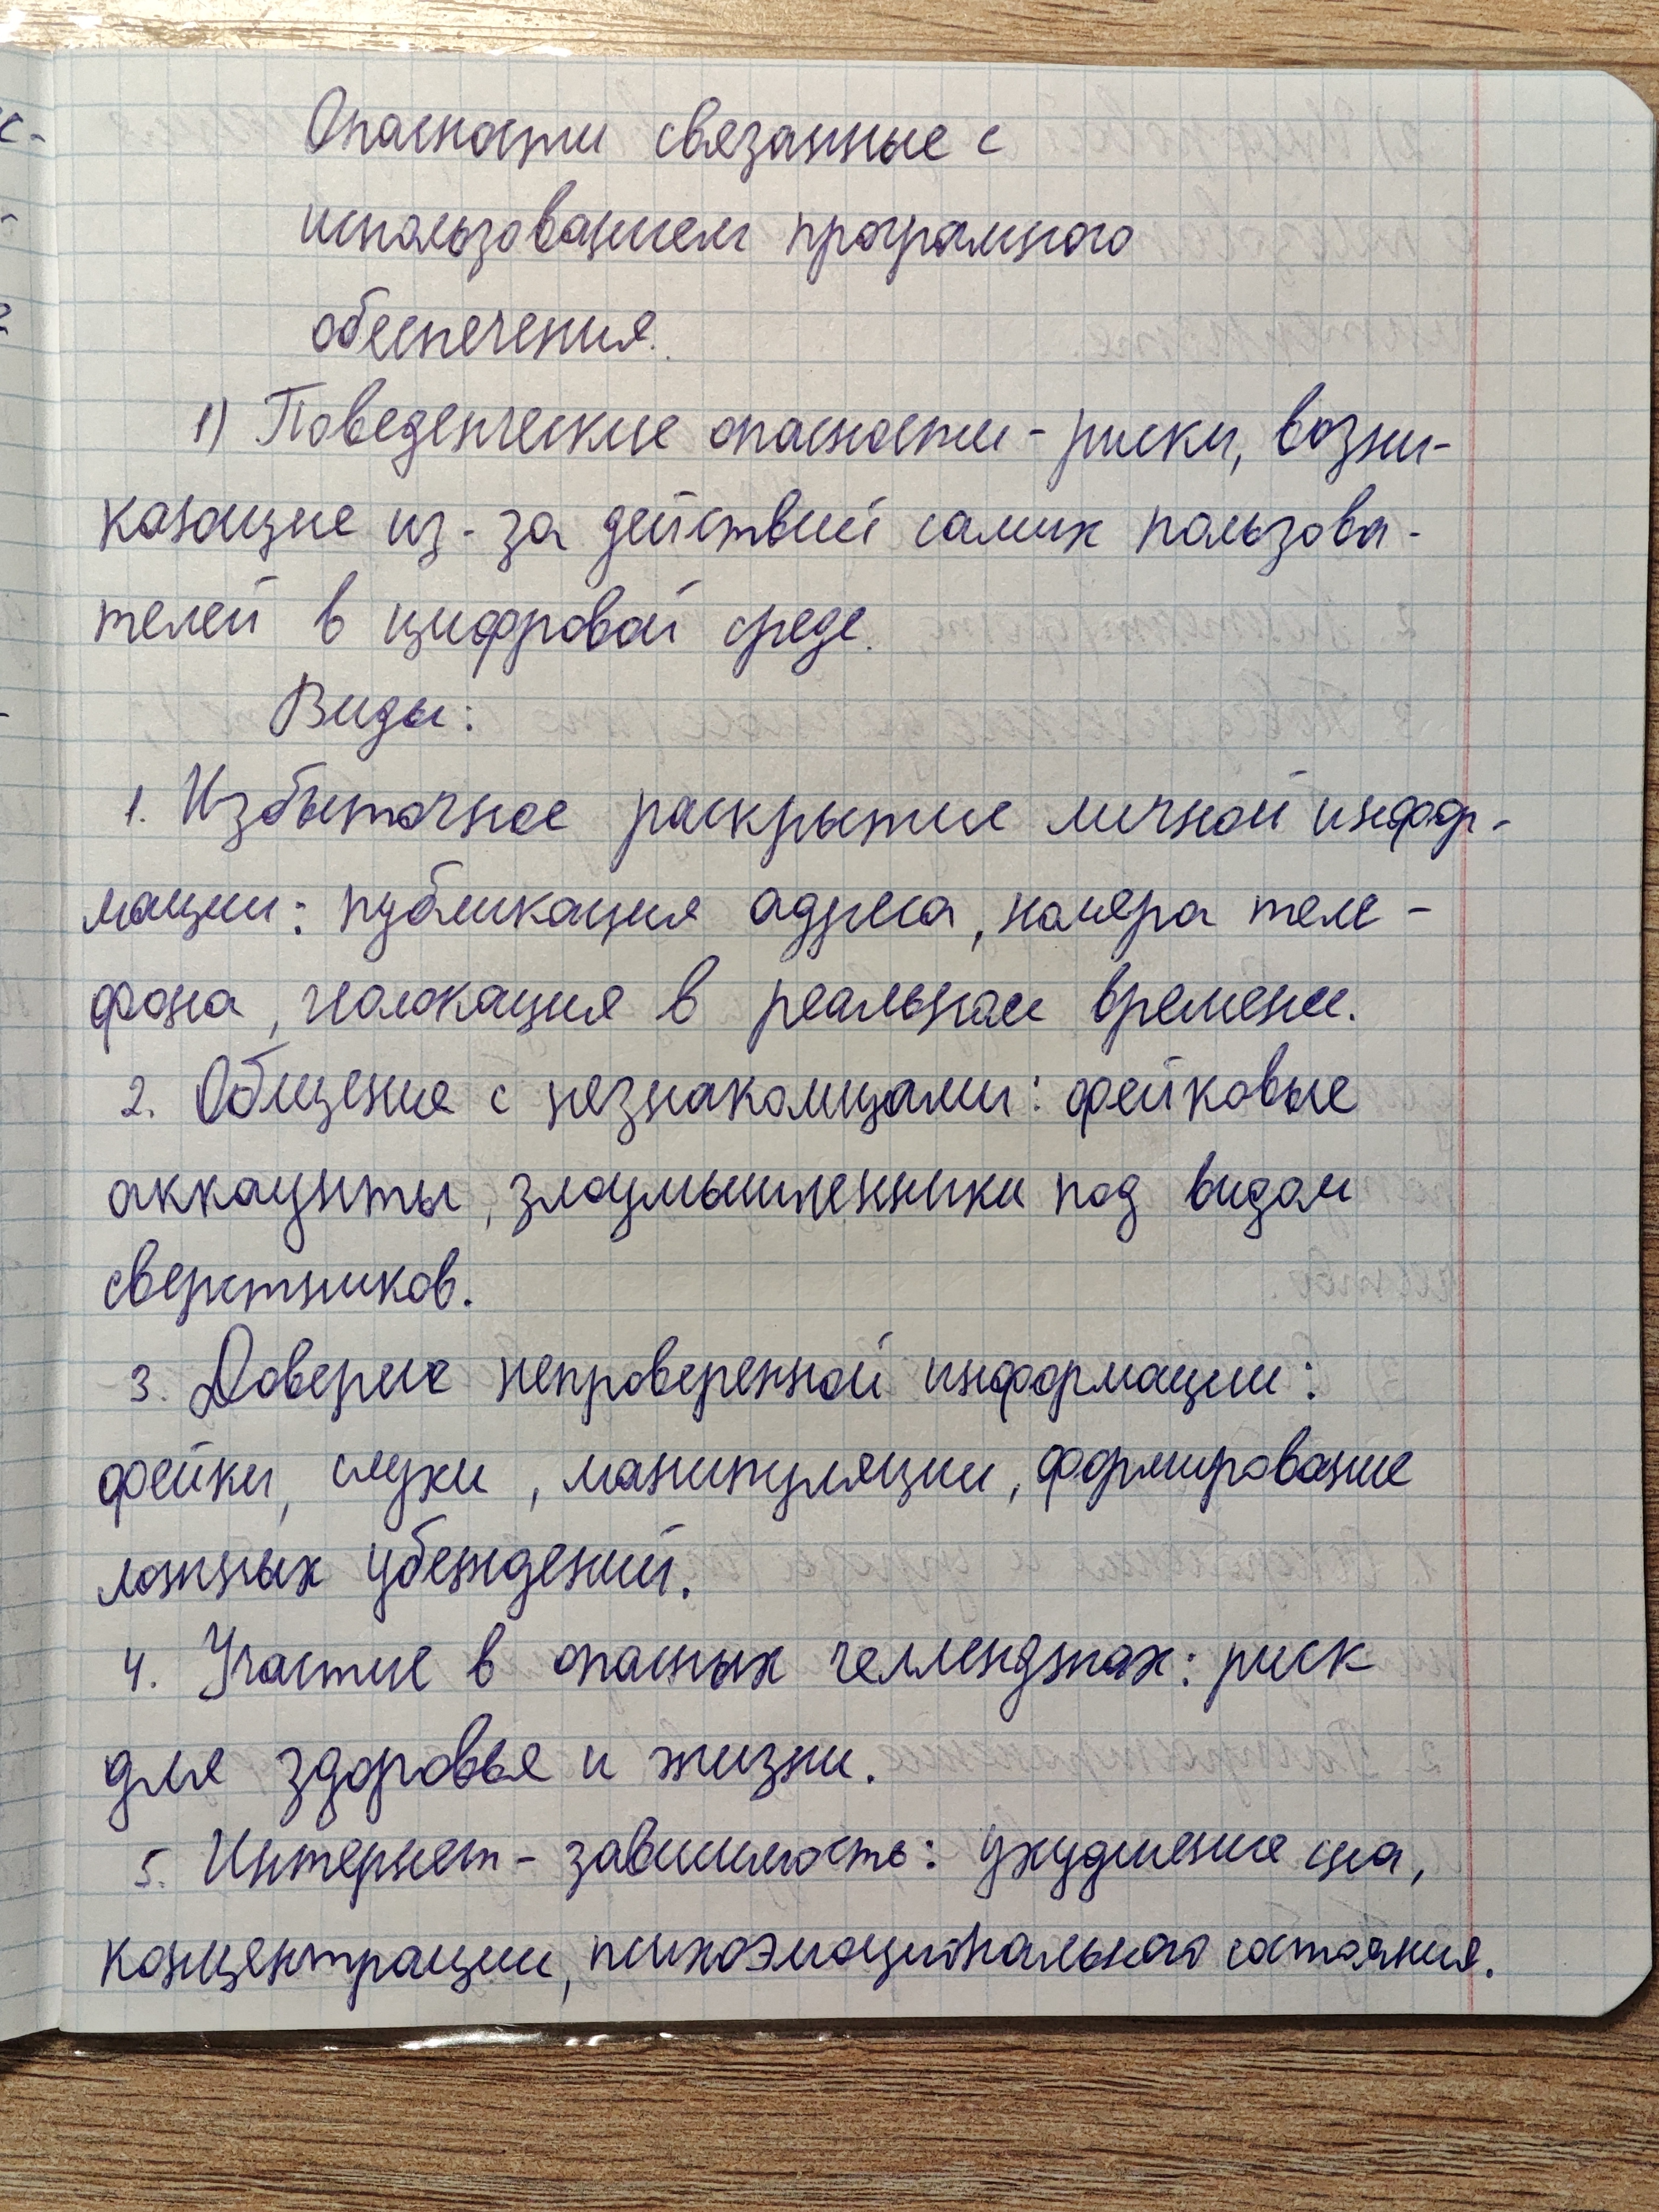 Опасности связанные с
использованием програмного
обеспечения.
1) Поведенческие опасности - риски, возни-
кающие из-за действий самих пользова-
телей в цифровой среде.
Виды:
1. Избыточное раскрытие личной инфор-
мации: публикация адреса, номера теле-
фона, геолокация в реальном времени.
2. Общение с незнакомцами: фейковые
аккаунты, злоумышленники под видом
сверстников.
3. Доверие непроверенной информации:
фейки, слухи, манипуляции, формирование
ложных убеждений.
4. Участие в опасных челленджах: риск
для здоровья и жизни.
5. Интернет-зависимость: ухудшение сна,
концентрации, психоэмоционального состояния.